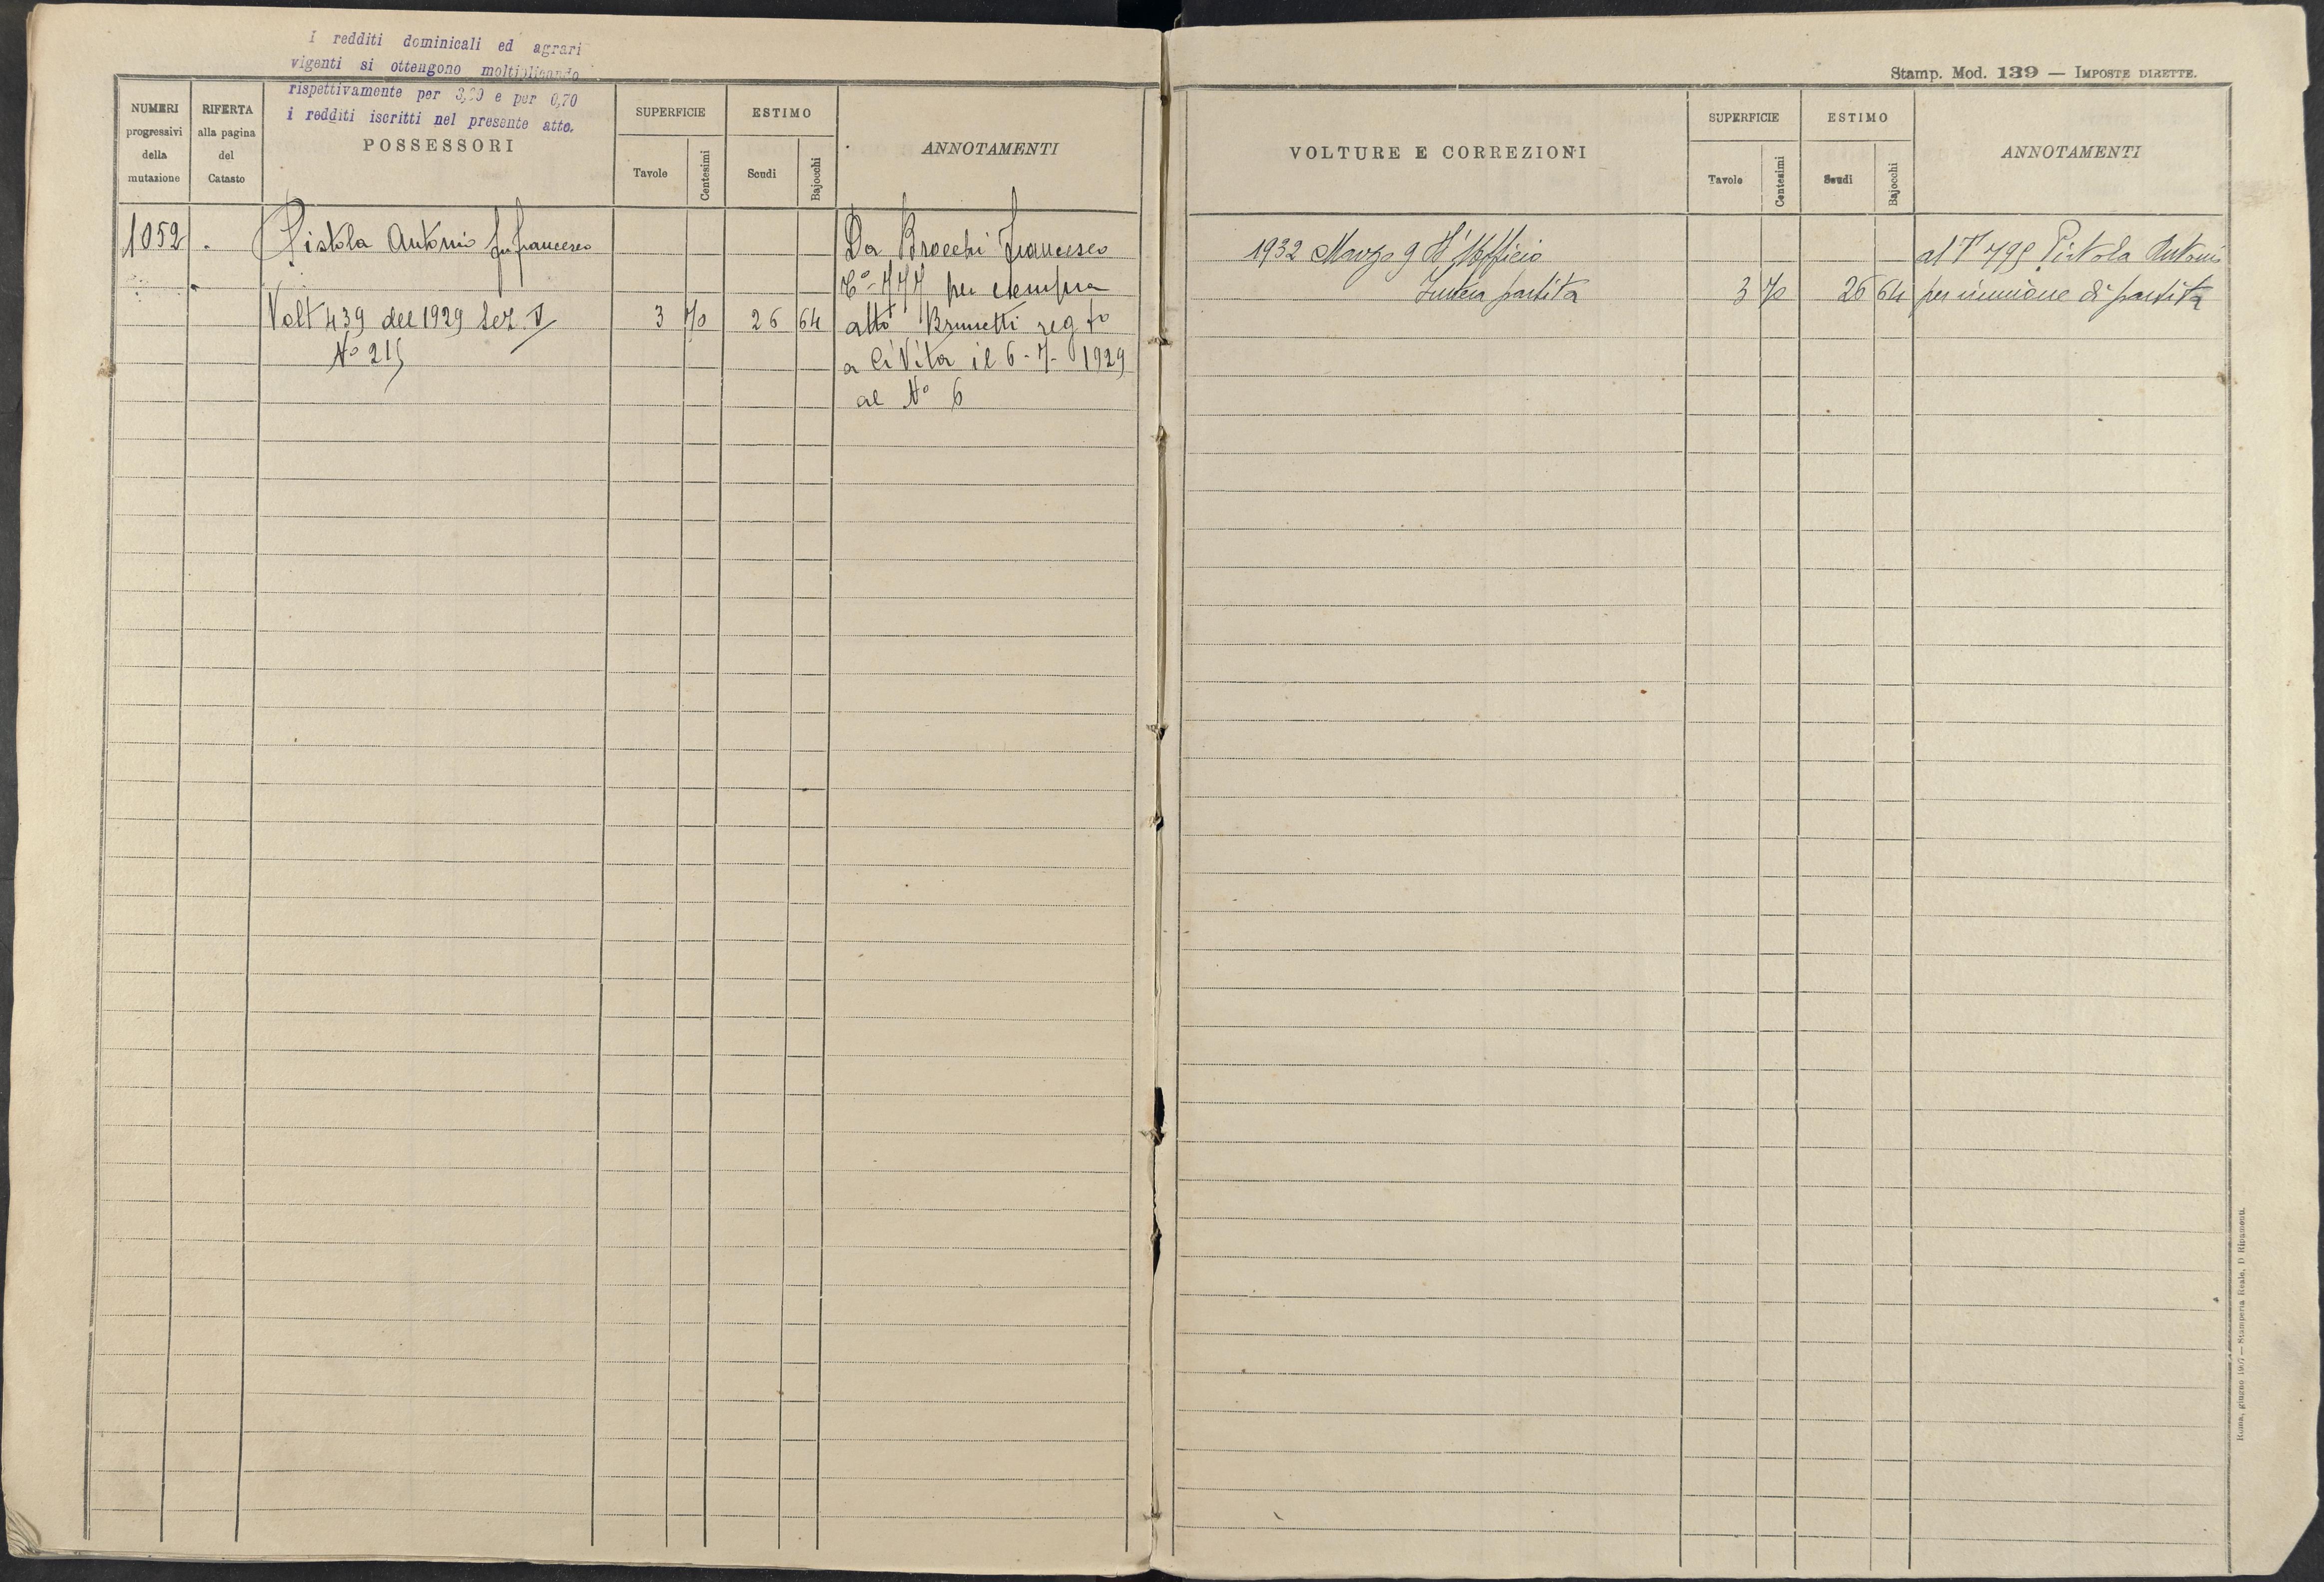 I redditi dominicali ed agrari
vigenti si ottengono moltiplicando
rispettivamente per 3,20 e per 0,70
i redditi iscritti nel presente atto.
NUMERI progressivi della mutazione
RIFERTA alla pagina del Catasto
POSSESSORI
SUPERFICIE
Tavole
Centesimi
ESTIMO
Scudi
Bajocchi
ANNOTAMENTI
1052
Pistola Antonio fu Francesco
Volt 439 del 1929 Sez. V 3 70 26 64
N° 215
Da Brocchi Francesco
C° 777 per
atto Brunetti reg to
a CiVita il 6-7-1929
al N° 6
Stamp. Mod. 139 — IMPOSTE DIRETTE.
VOLTURE E CORREZIONI
SUPERFICIE
Tavole
Centesimi
ESTIMO
Scudi
Bajocchi
ANNOTAMENTI
1932 Marzo 9 D'Ufficio al 795 Pistola Antonio
Intera partita 3 70 26 64 per riunione di partita
Roma, giugno 1907 — Stamperia Reale, D Ripamonti.